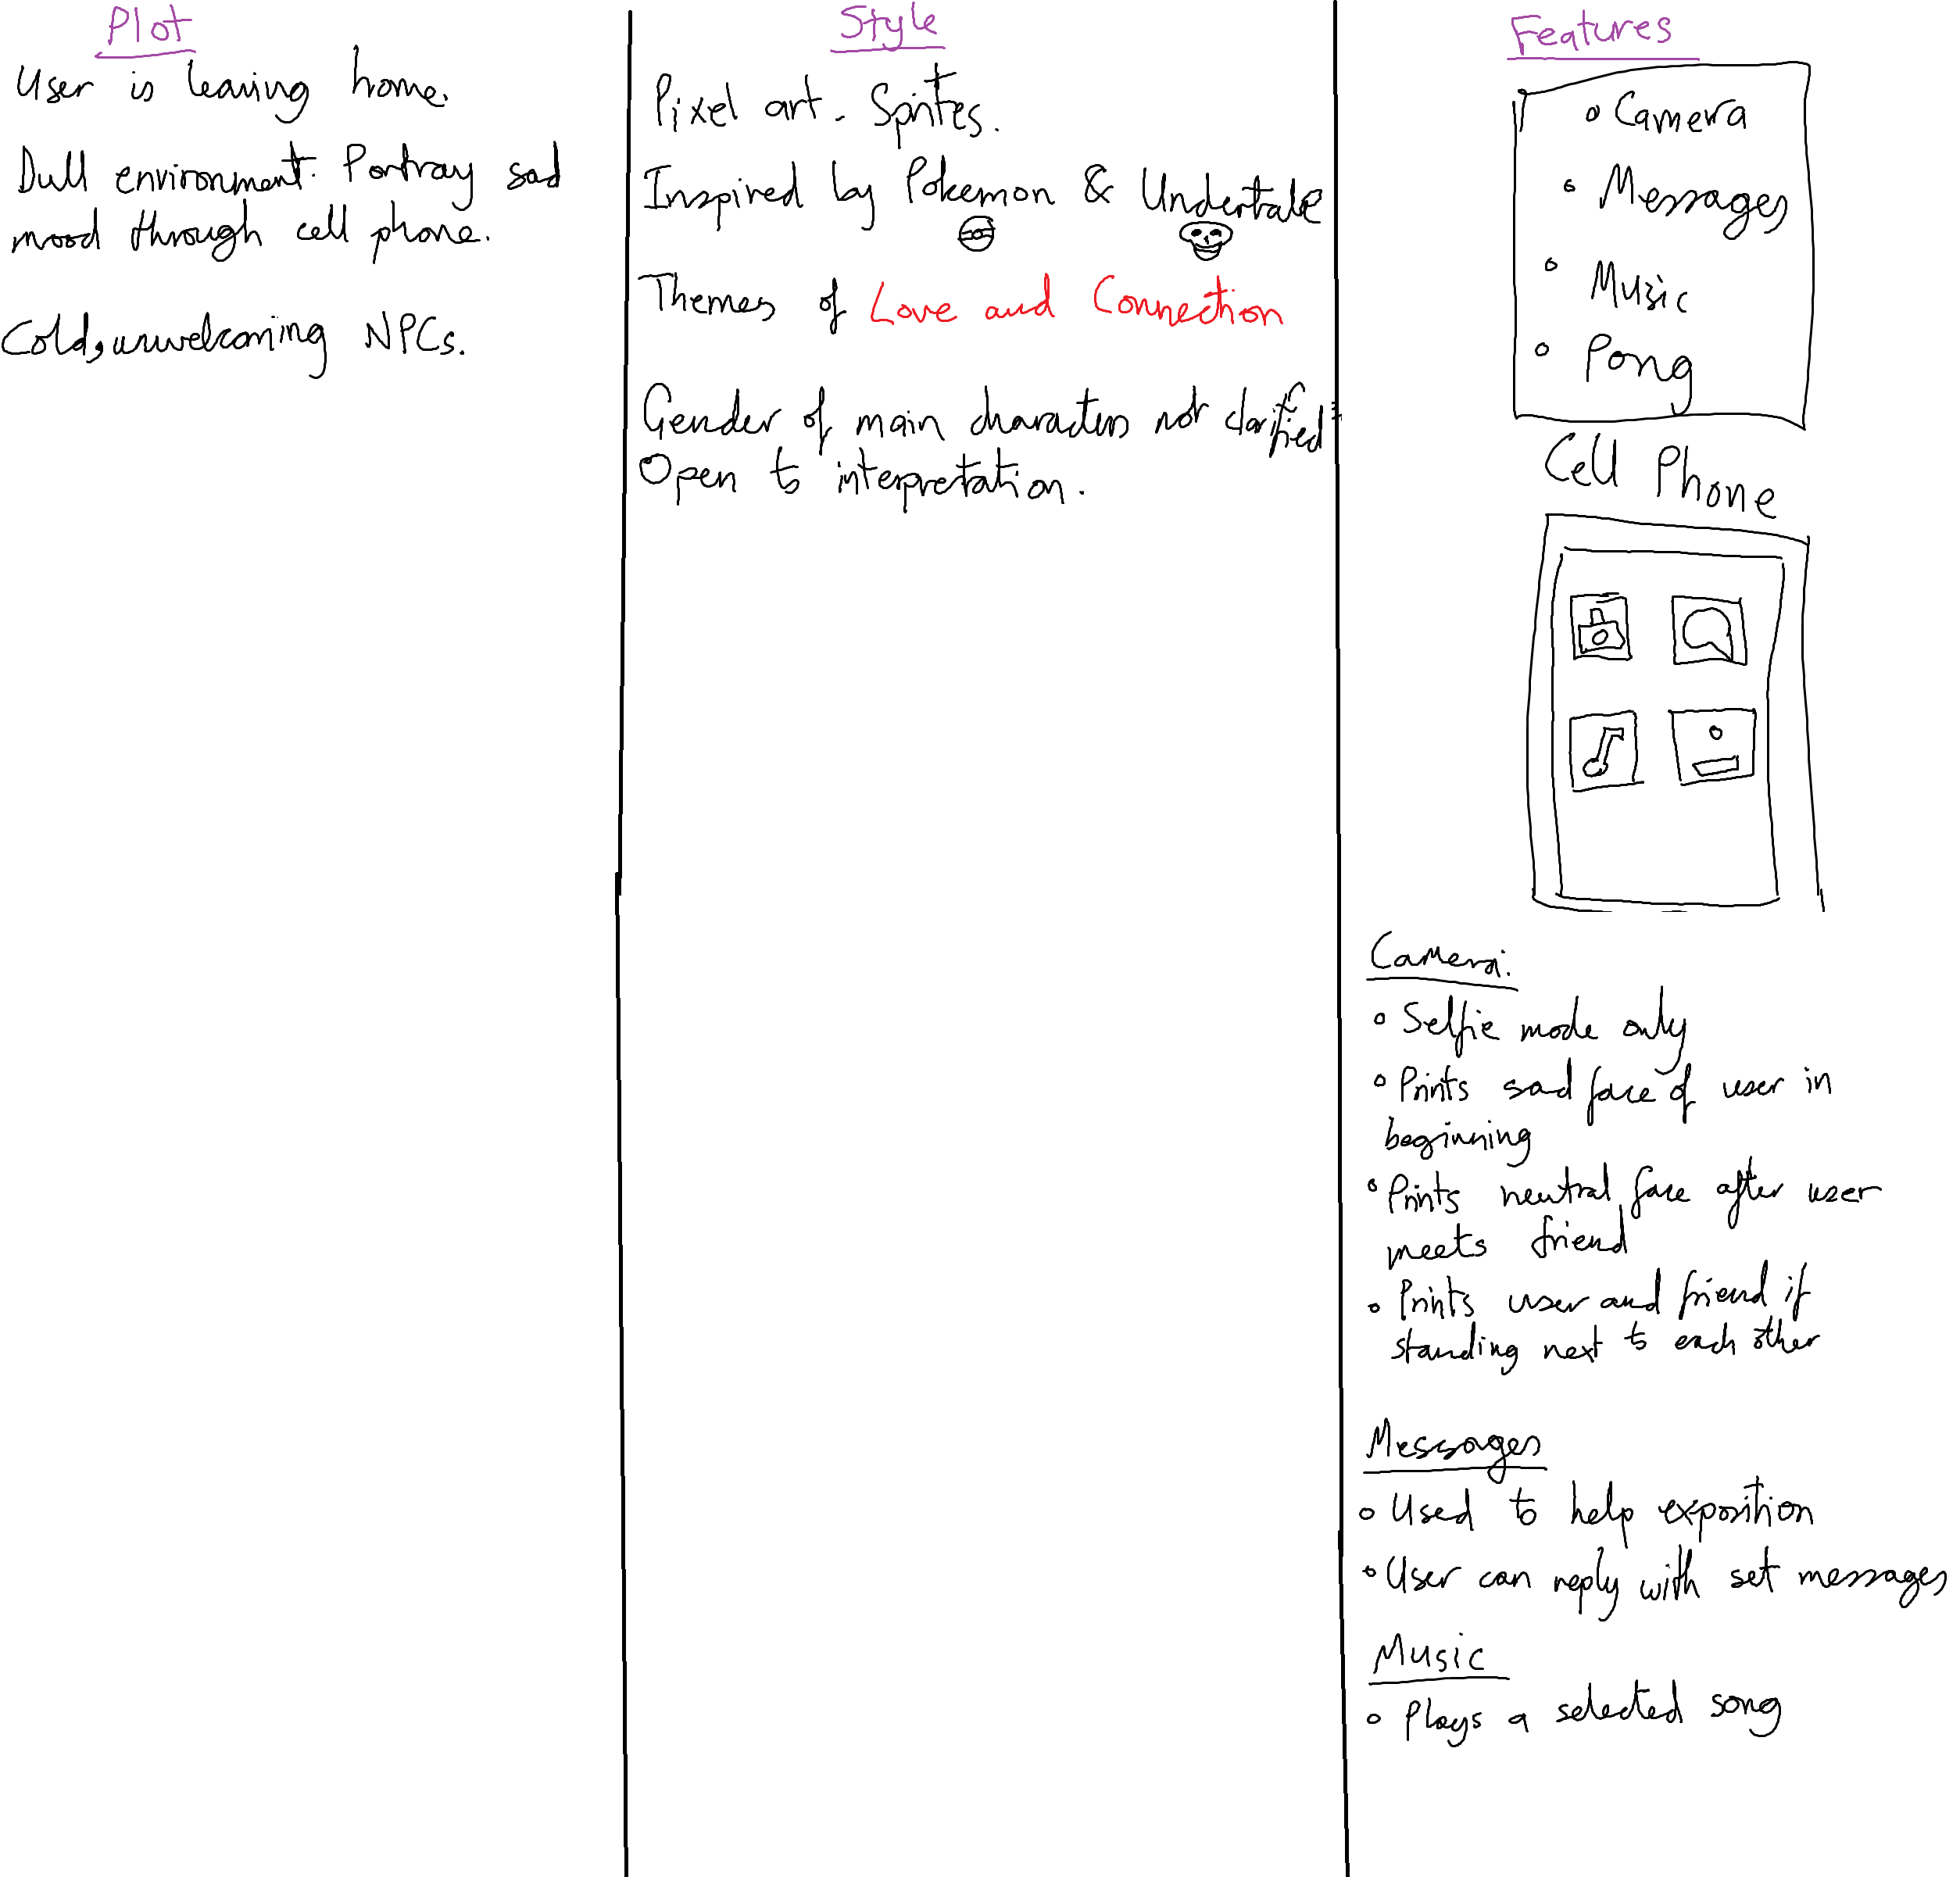 Plot
User is leaving home.
Dull environment. Portray sad
mood through cell phone.
Cold, unwelcoming NPCs.
Style
Pixel art. Sprites.
Inspired by Pokemon & Undertale
Themes of Love and Connection
Gender of main characters not clarified.
Open to interpretation.
Features
Camera
Messages
Music
Pong
Cell Phone
Camera:
Selfie mode only
Prints sad face of user in
beginning
Prints neutral face after user
meets friend
Prints user and friend if
standing next to each other
Messages
Used to help exposition
User can reply with set messages
Music
Plays a selected song